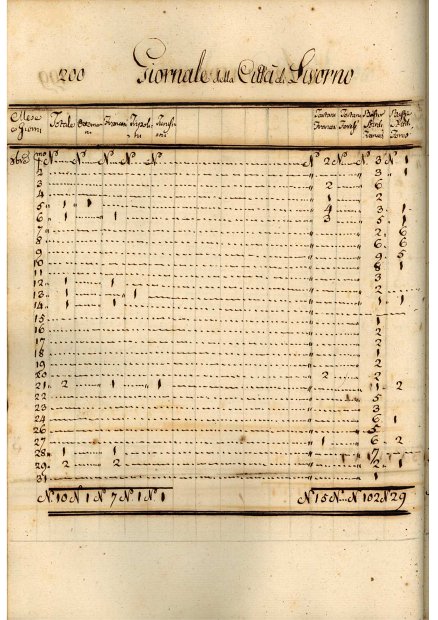 200 Giornale della Città di Livorno
Mese e Giorni Totale Francesi Napolitani
1 N° N° N° N° N° N° 2 N° N° 3 N° 1
2 3
3 2 6
4 1 2
5 1 1 4 3 1
6 1 1 3 5 1
7 2 6
8 6 6
9 9 5
10 8 1
11 3
12 1 1 2
13 1 1 2
14 1 1 1 1
15
16
17 2
18 1
19 2
20 2
21 2 1 1 2
22 5
23 3
24 6 1
26 5
27 1 6 2
28 1 1
29 2 2 2 1
31 1
N° 10 N° 1 N° 7 N° 1 N° 1 N° 15 N° N° 102 N° 29